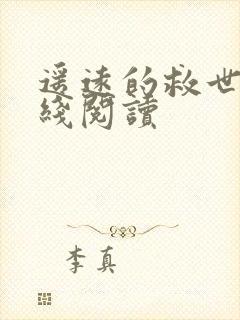 遥远的救世
綫閱讀
李真